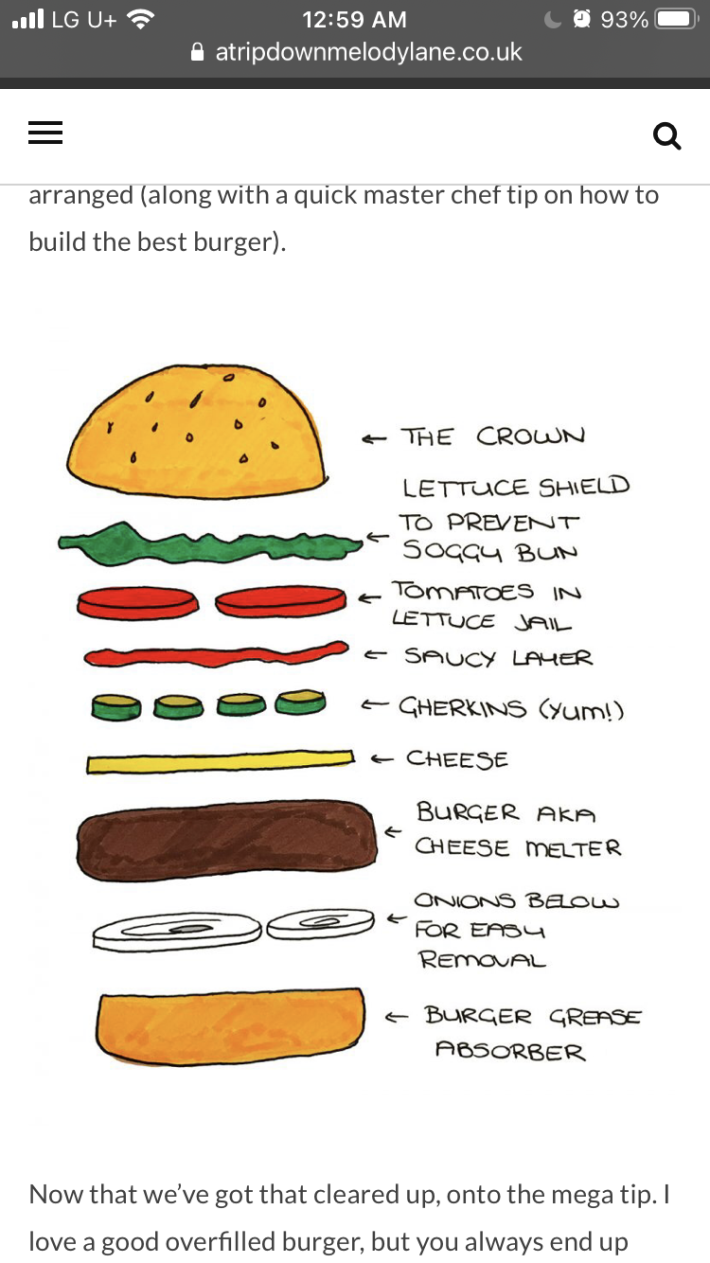 LG U+ 12:59 AM 93%
atripdownmelodylane.co.uk
arranged (along with a quick master chef tip on how to
build the best burger).
THE CROWN
LETTUCE SHIELD
TO PREVENT
SOGGY BUN
TOMATOES IN
LETTUCE JAIL
SAUCY LAYER
GHERKINS (YUM!)
CHEESE
BURGER AKA
CHEESE MELTER
ONIONS BELOW
FOR EASY
REMOVAL
BURGER GREASE
ABSORBER
Now that we’ve got that cleared up, onto the mega tip. I
love a good overfilled burger, but you always end up